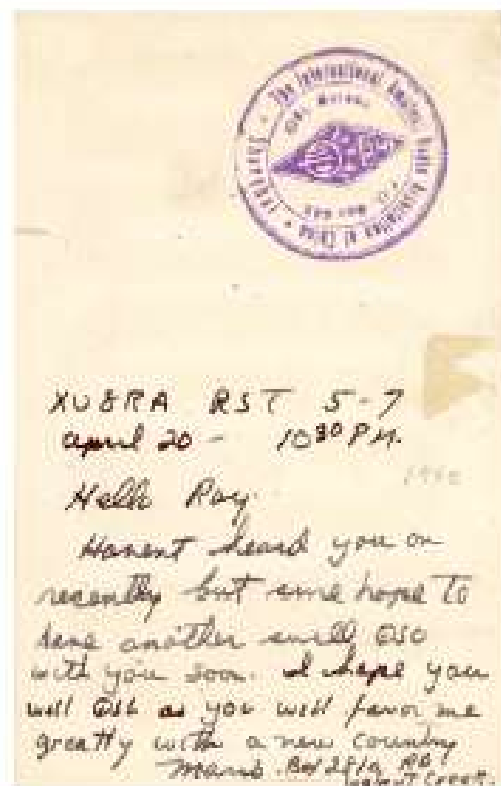 The International Amateur Radio Association of China
QSL Bureau
XU8RA RST 5-7
april 20 - 10 30 P.M.
1940
Hello Ray.
Havent heard you on
recently but sure hope to
have another swell QSO
with you soon. I hope you
will QSL as you will favor me
greatly with a new country